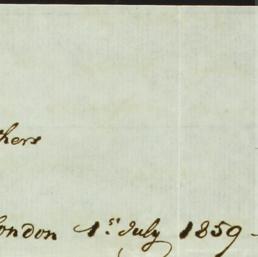 thers
ondon 1st July 1859 -